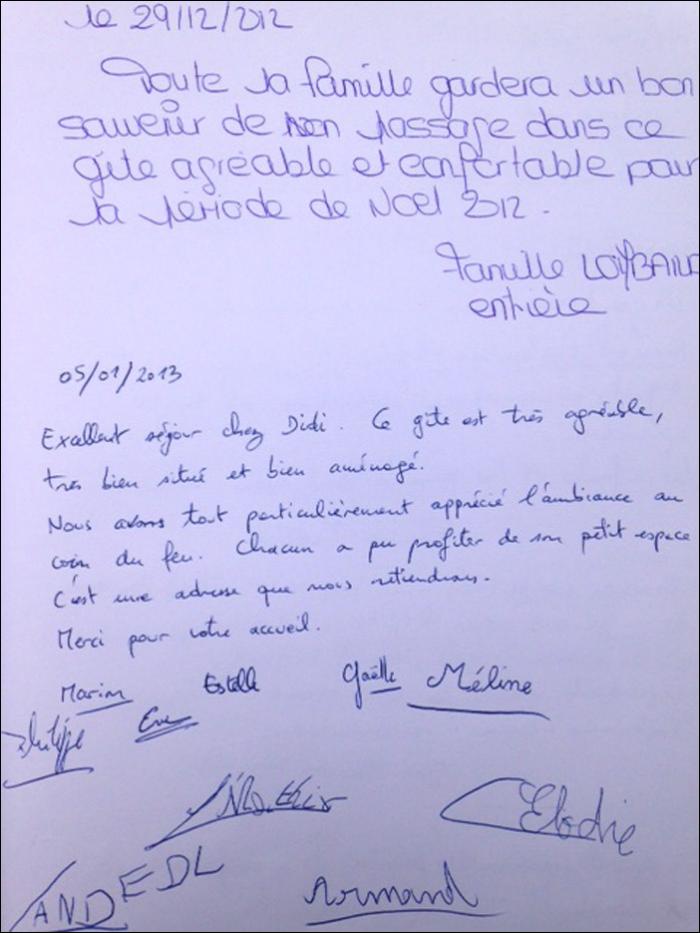 le 29/12/2012
Toute la famille gardera un bon
souvenir de son passage dans ce
gîte agréable et confortable pour
la période de Noël 2012.
Famille
entière
05/01/2013
Excellent séjour chez Didi. Ce gîte est très agréable,
très bien situé et bien aménagé.
Nous avons tout particulièrement apprécié l'ambiance au
coin du feu. Chacun a pu profiter de son petit espace
C'est une adresse que nous retiendrons.
Merci pour votre accueil.
Marion Estelle Gaëlle Méline
Philippe Eve
Mathis Elodie
Armand